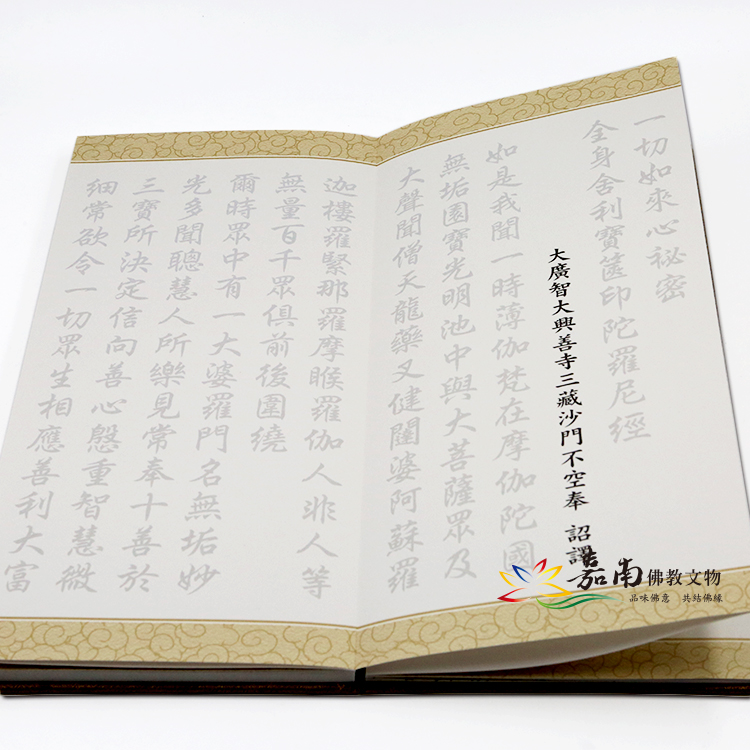 一切如來心祕密
全身舍利寶篋印陀羅尼經
大廣智大興善寺三藏沙門不空奉 詔譯
如是我聞一時薄伽梵在摩伽陀國
無垢園寶光明池中與大菩薩眾及
大聲聞僧天龍藥叉健闥婆阿蘇羅
迦樓羅緊那羅摩睺羅伽人非人等
無量百千眾俱前後圍繞
爾時眾中有一大婆羅門名無垢妙
光多聞聰慧人所樂見常奉十善於
三寶所決定信向善心慇重智慧微
細常欲令一切眾生相應善利大富
嘉南佛教文物
品味佛意 共結佛緣